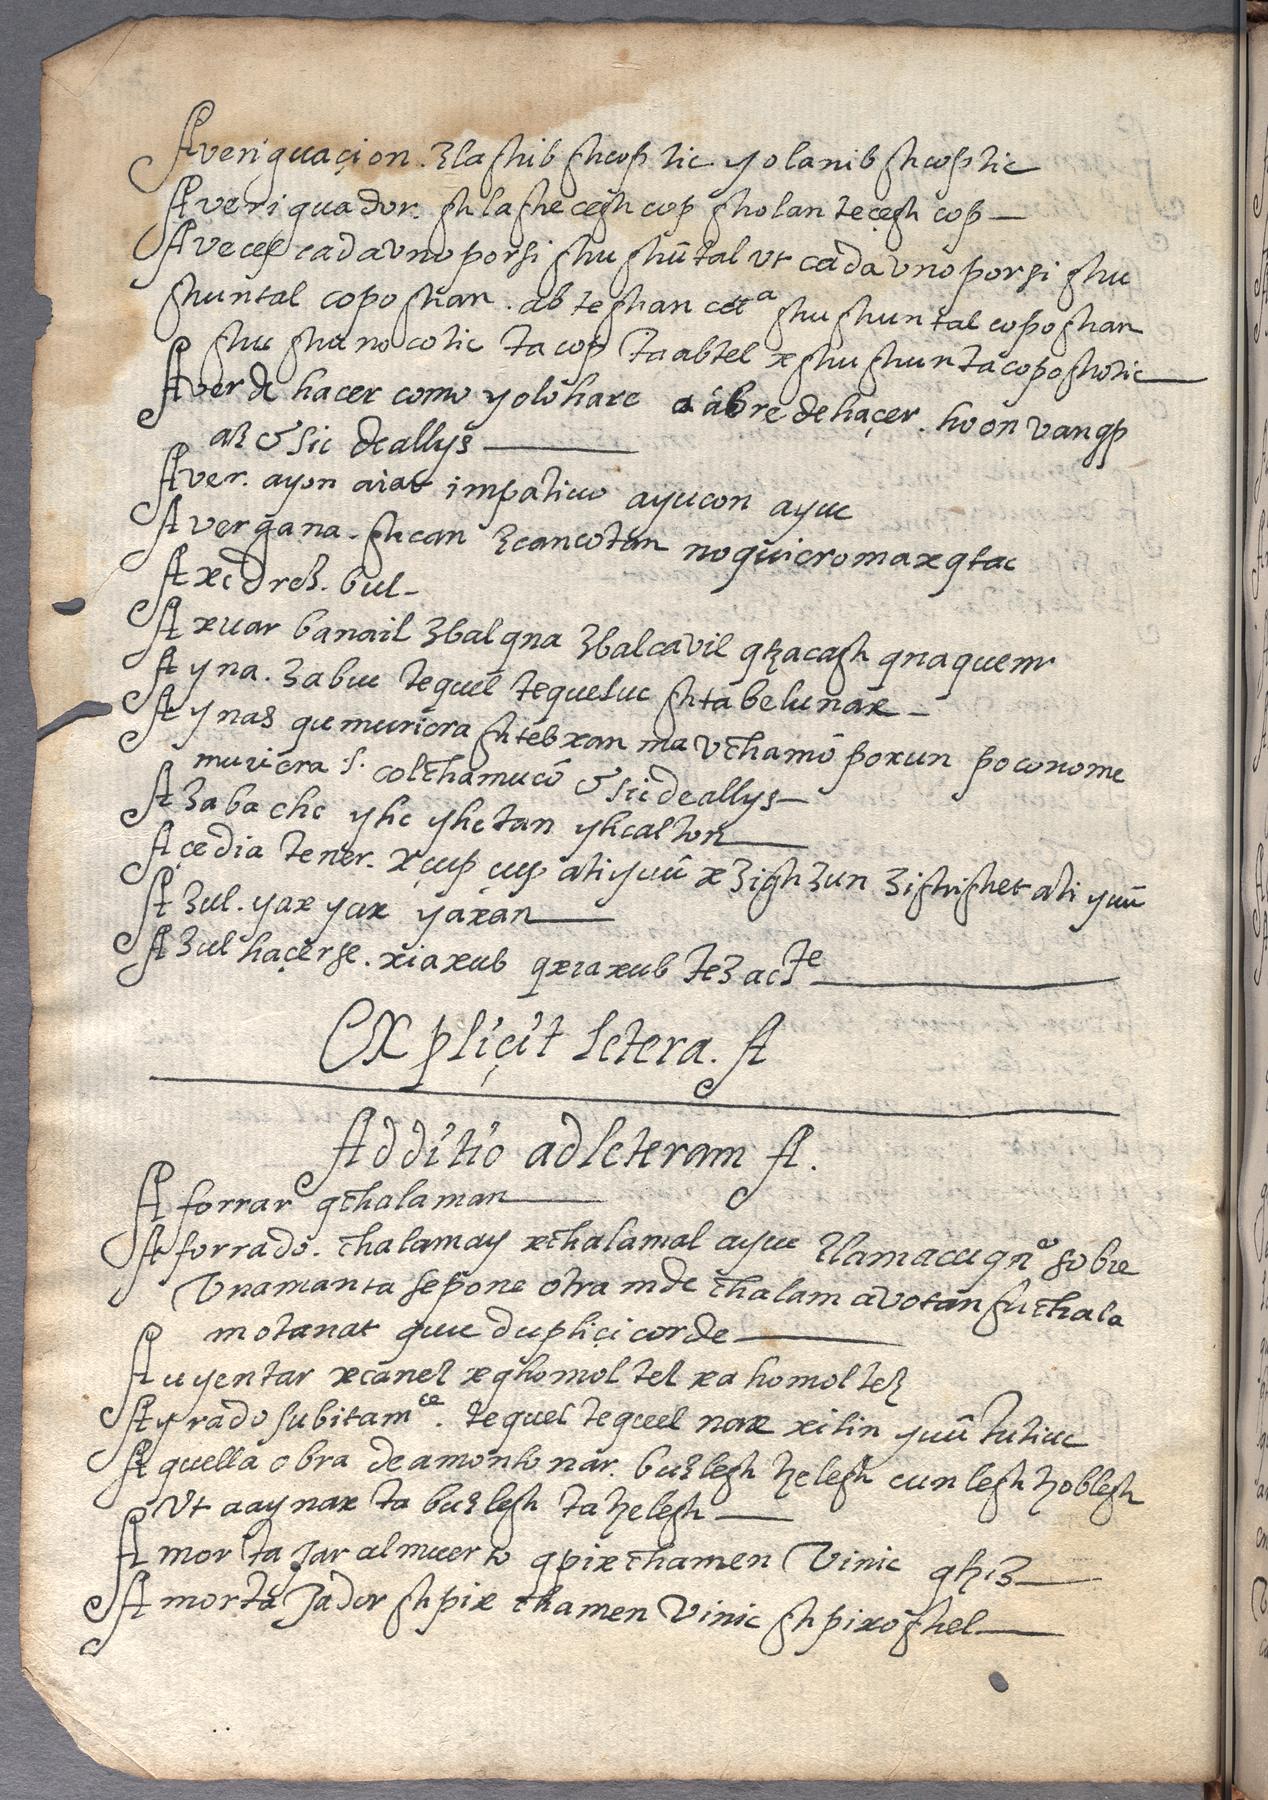 Averiguaçion. zlaghib ghcop tic yolanib ghcoptic
Averiguador. ghlaghe cegh cop gholan tecegh cop
Aveces cadavno porsi ghu ghūtal vt cada vno porsi ghu
ghuntal copo ghan. ab teghan cetª ghu ghuntal copoghan
ghu ghunocotic ta cop taabtel x ghu ghuntacopoghotic
Aver de hacer como yo lo hare a abre dehaçer. hoon vangp
az & sic de allys
Aver. ayon aiat impatiuo ayucon ayuc
Avergana. ghcan zcancotan noquieromaxqtac
Axedrez. bul
Axuar banail zbalqna zbalcavil qkacagh qnaquem
Ayna. zabuc tequel tequeluc ghtabelunax
Aynas qu muriera ghtebxan ma vchamō poxun poconome
muriera .s. colchamucō & sic de allys
Azabache yhc yhctan yhcalton
Açedia tener. xçup çup atiyuū x zighzun zighighet ati yuū
Azul. yax yax yaxan
Azul haçerse. xiaxub qxiaxub tezacte
Expliçit letera. A
Additio ad leteram A.
Aforrar qchalaman
Aforrado. chalamay xchalamal ayuc llamaceuqnº sobre
vnamanta sepone otra mde chalam avotan ghchala
motanat quc dupliçi corde
Auyentar xcanez xghomol tez xa homol tez
Ayrado subitamce. tequel tequel nax xilin yuū tutiuc
Aquella obra de amontonar. buzlegh helegh cunlegh hoblegh
vt aay nax ta buzlegh ta helegh
Amortajar almuerto qpixchamen vinic qhiz
Amortajador ghpix chamen vinic ghpixoghel